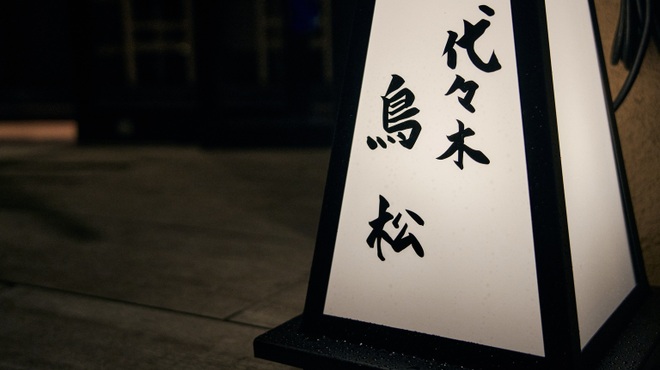 代々木
鳥松